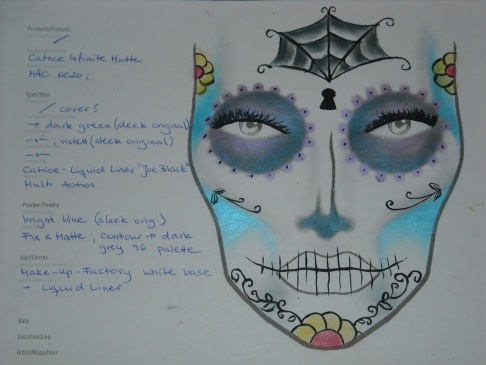 Products/Produits
Catrice Infinite Matte
MAC NC20;
Eyes/Yeux
cover:
→ dark green (sleek original)
—"—, violett (sleek original)
—"—
Catrice - Liquid Liner "Joe, Black"
Multi Action
Powder/Poudre
bright blue (sleek orig.)
Fix & Matte; contour → dark
grey 96 palette
Lips/Lèvres
Make-up-Factory white base
→ Liquid Liner
Date
Location/Lieu
Artist/Maquilleur